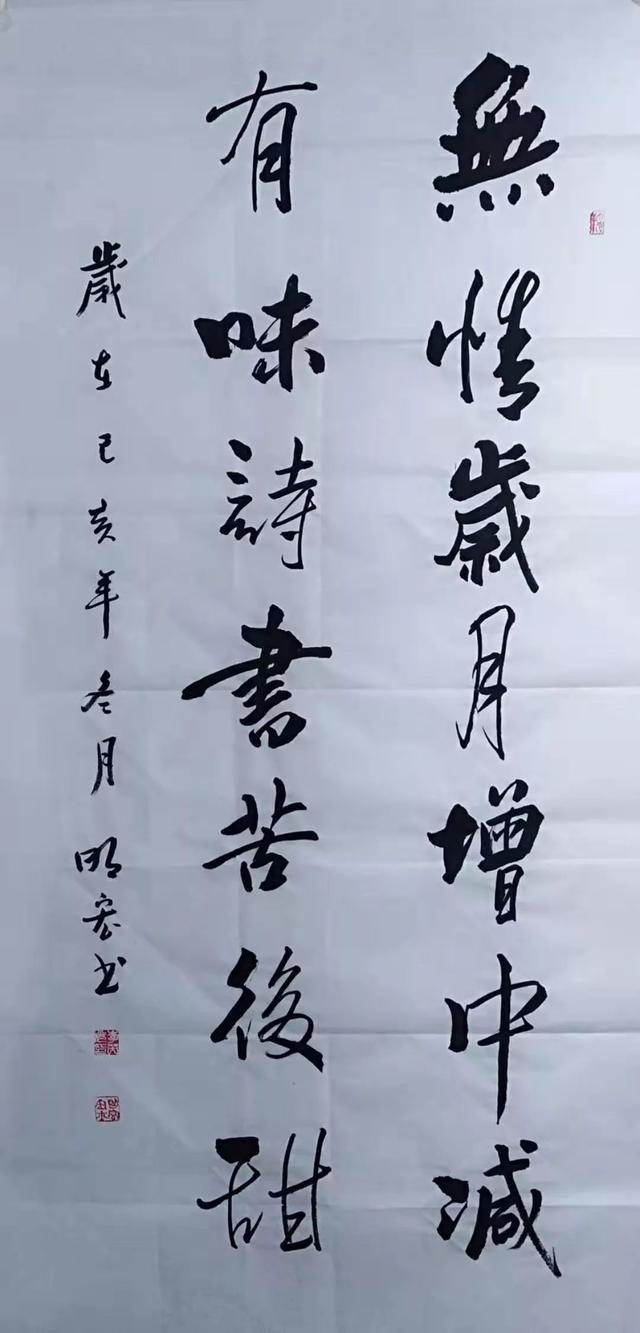 無情歲月增中減
有味詩書苦後甜
歲在己亥年冬月明宏书